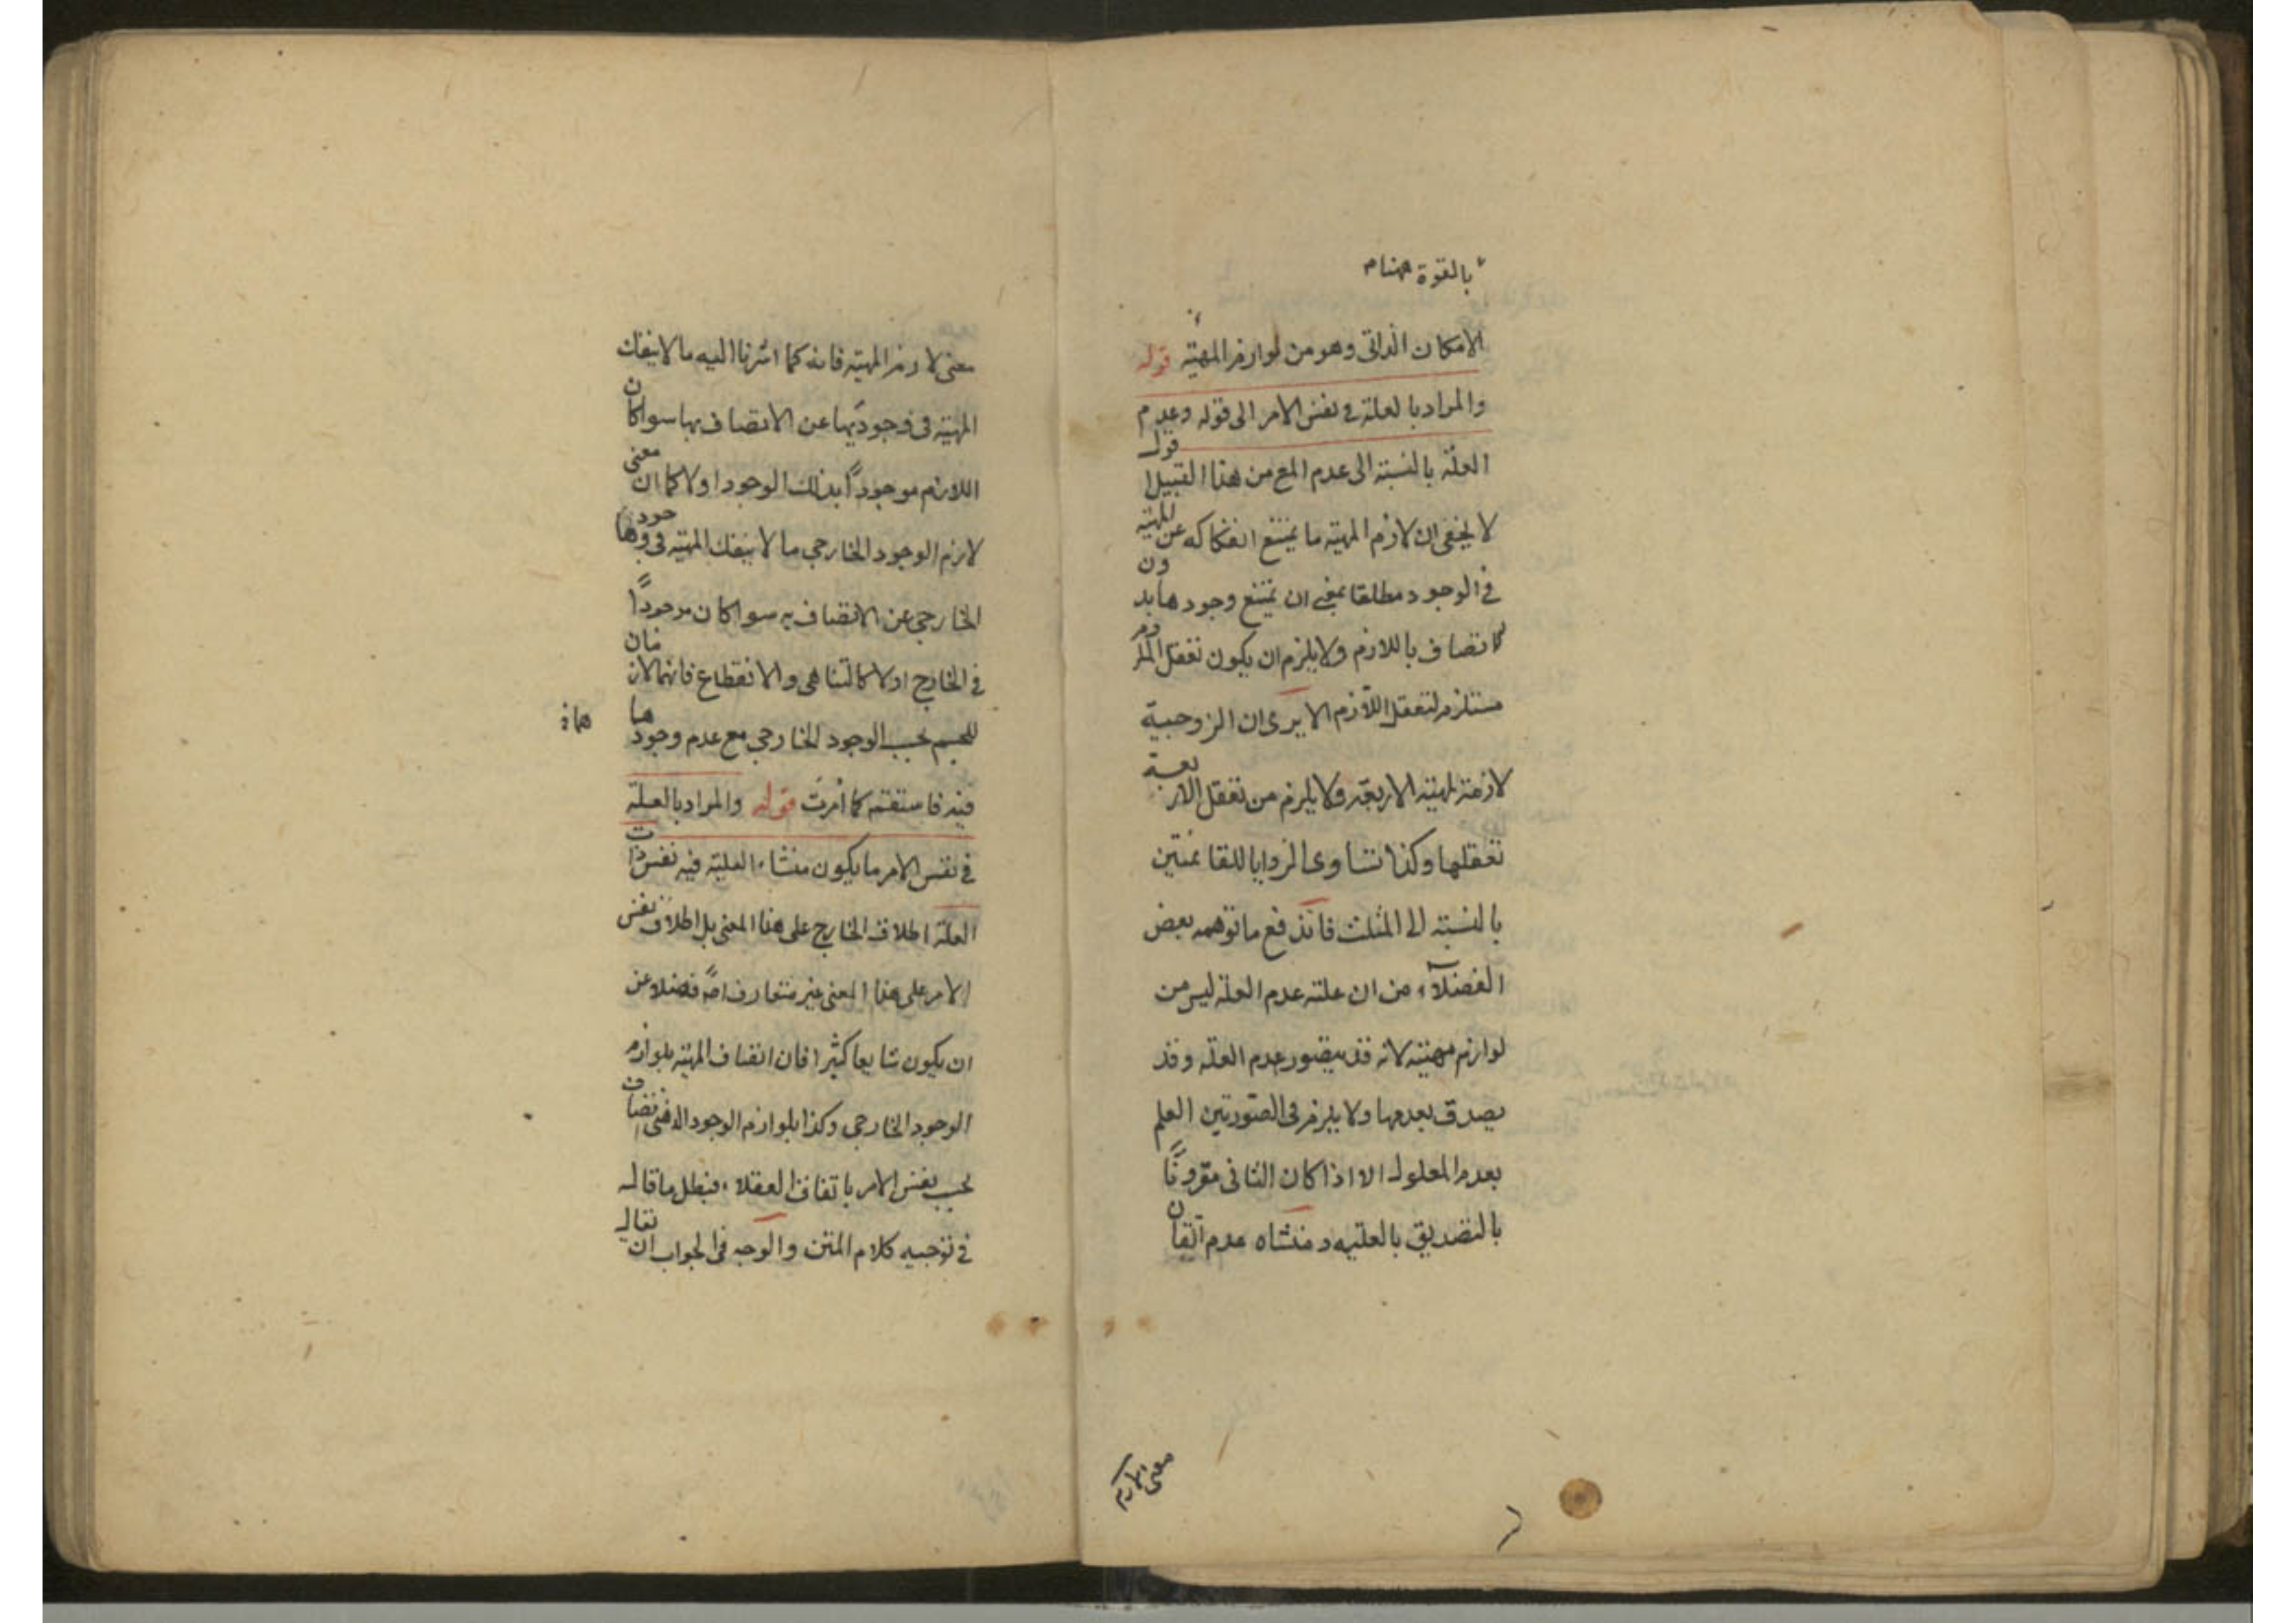 بالقوة ههنا م
الامكان الذاتى وهو من لوازم المهيّة قوله
والمراد بالعلة فى نفس الامر الى قوله وعدم
العلّة بالنسبة الى عدم المع من هذا القبيل اقول
لا يخفى ان لازم المهيّة ما يمتنع انفكاكه عن المهيّة
فى الوجود مطلقا بمعنى ان يمتنع وجودها بدون
الاتصاف باللازم ولا يلزم ان يكون تعقل الملزوم
مستلزم لتعقل اللازم الا يرى ان الزوجية
لازمة لمهيّة الاربعة ولا يلزم من تعقل الاربعة
تعقلها وكذا تساوى الزوايا للقائمتين
بالنسبة الى المثلث فاندفع ما توهمه بعض
الفضلآء من ان علته عدم العلة ليس من
لوازم مهيته لانه قد يتصور عدم العلّة وقد
يصدق بعدمها ولا يلزم فى الصّورتين العلم
بعدم المعلول الا اذا كان الثانى مقرونًا
بالتصديق بالعلتيه ومنشاه عدم اتقان
معنى لازم
معنى لازم المهيّة فانه كما اشرنا اليه ما لا ينفك
المهيّة فى وجوديها عن الاتصاف بها سوا كان
اللازم موجودًا بذلك الوجود اولا كما ان معنى
لازم الوجود الخارجى ما لا ينفك المهيّة فى وجودها
الخارجى عن الاتصاف به سوا كان موجودًا
فى الخارج اولا كالتناهى والانقطاع فانهما لازمان
للجسم بحسب الوجود الخارجى مع عدم وجودهما
فيه فاستقم كما اُمرتَ قوله والمراد بالعلّة
فى نفس الامر ما يكون منشاء العليّة فيه نفس ذات
العلة اطلاق الخارج على هذا المعنى بل اطلاق نفس
الامر على هذا المعنى غير متعارف اصً فضلا عن
ان يكون شايعا كثيرا فان اتصاف المهيّة بلوازم
الوجود الخارجى وكذا بلوازم الوجود الذهنى اتصاف
بحسب نفس الامر باتفاق العقلاء فبطل ما قال
فى توجيه كلام المتن والوجه فى الجواب ان يقال